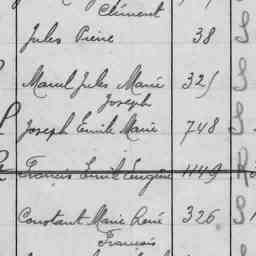 Clément
Jules Pierre 38 S
Marcel Jules Marie 325 S
Joseph
Joseph Emile Marie 748 S
Francis Emile Eugène 1149 R
Constant Marie René 326 S
Francois